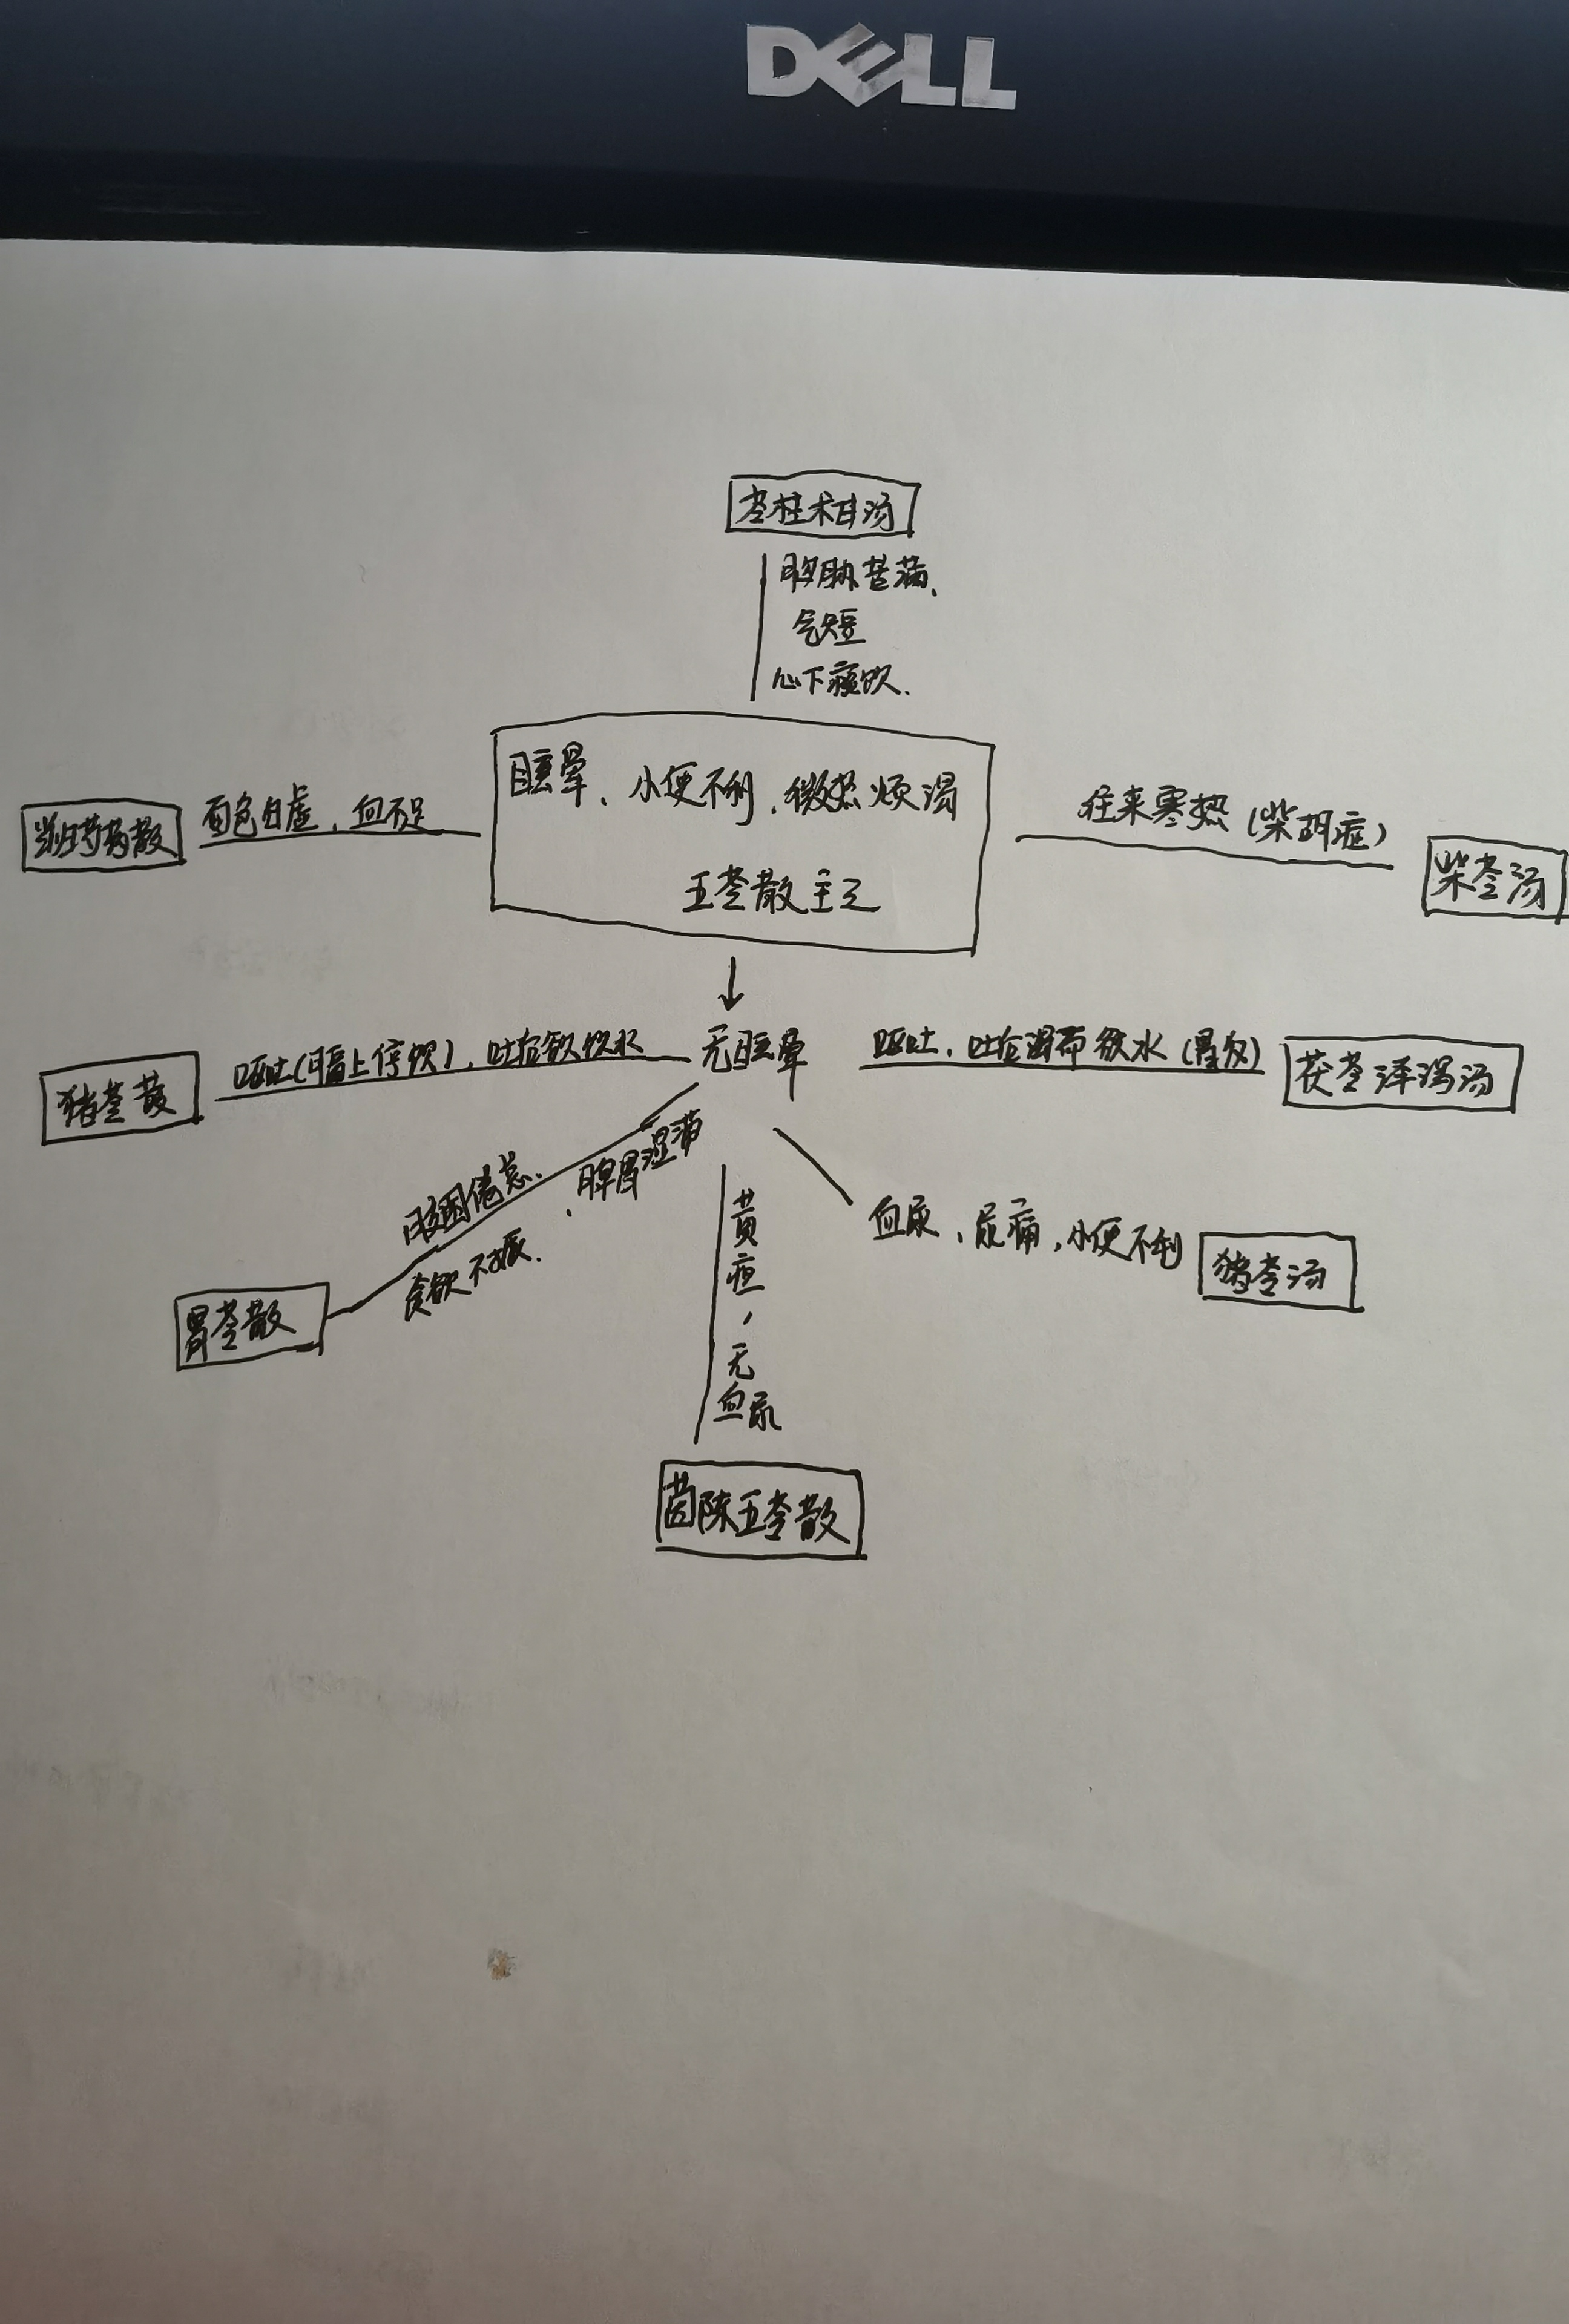 DELL
苓桂术甘汤
胸胁苦满、
气短
心下痰饮.
眩晕、小便不利、微热烦渴
五苓散主之
当归芍药散
面色白虚、血不足
往来寒热(柴胡症)
柴苓汤
猪苓散
呕吐(膈上停饮)、吐后欲饮水
无眩晕
呕吐、吐后渴而欲饮水(胃反)
茯苓泽泻汤
肢困倦怠、
食欲不振.
、脾胃湿滞
胃苓散
黄疸,无血尿
血尿、尿痛,小便不利
猪苓汤
茵陈五苓散